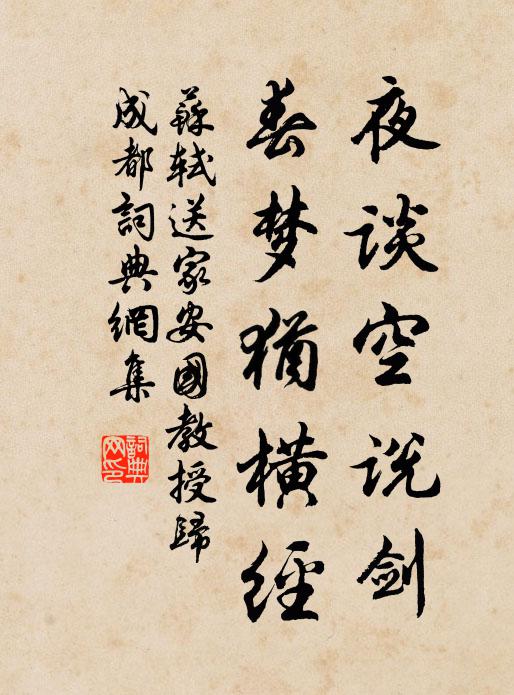 夜谈空说剑
春梦犹横经
蘇軾送家安國教授歸
成都詞典網集
詞典网印